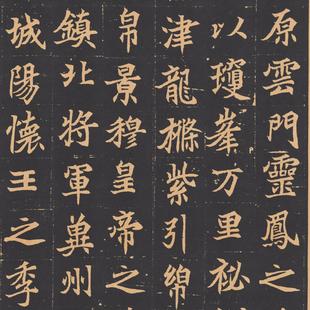 原雲門靈鳳之
以瓊峯万里祕
津龍檦紫引綿
帛景穆皇帝之
鎮北將軍冀州
城陽懷王之季